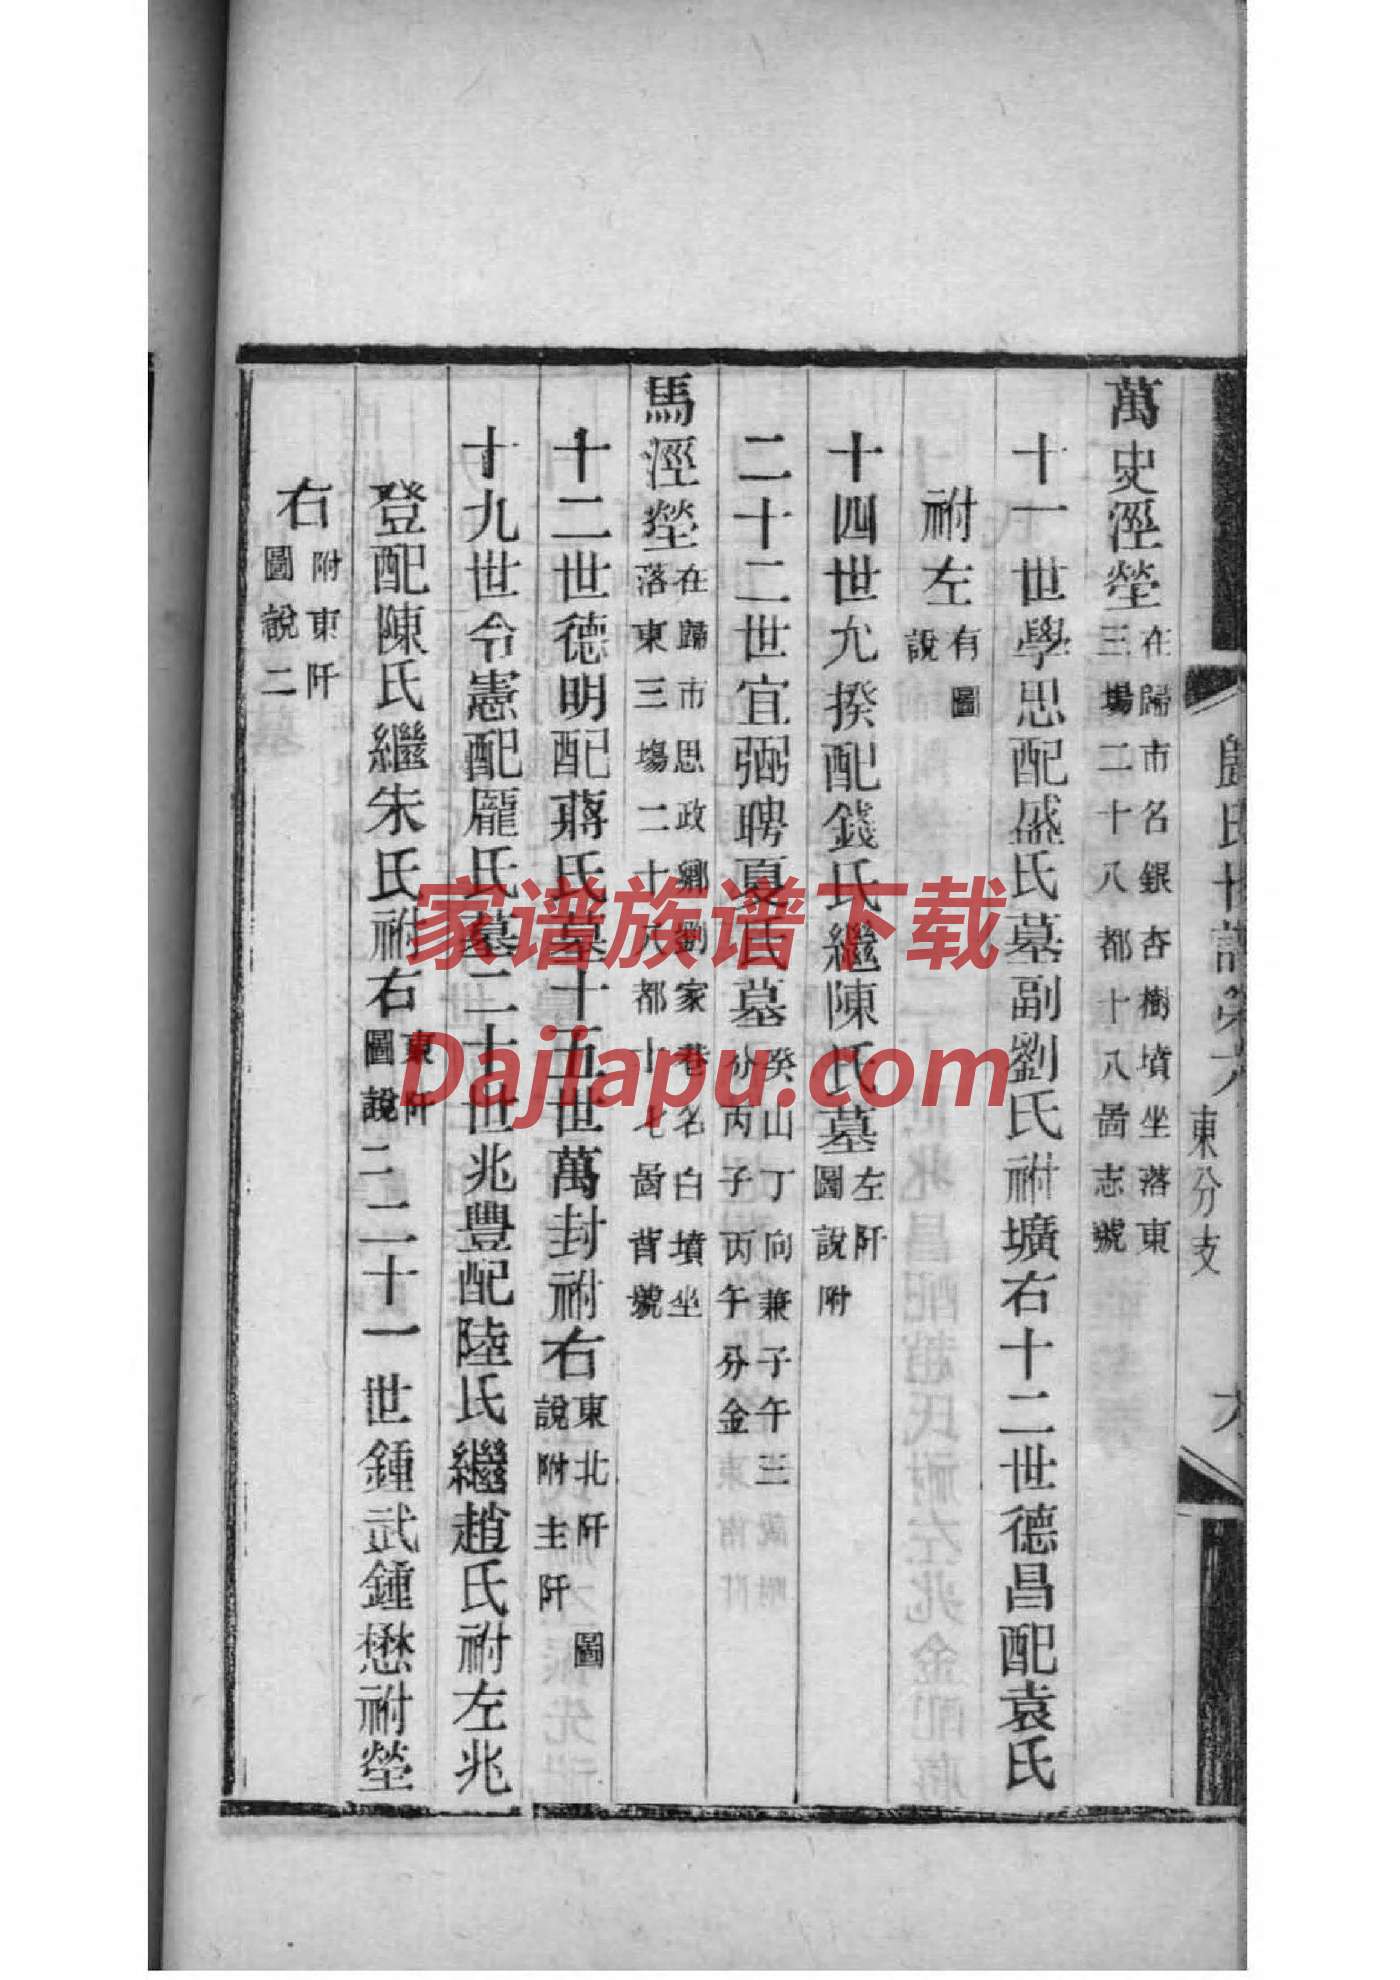 萬史涇塋在歸市名銀杏樹墳坐落東三場二十八都十八啚志號
十一世學思配盛氏墓副劉氏祔壙右十二世德昌配袁氏
祔左有圖說
十四世九揆配錢氏繼陳氏墓左阡圖說附
二十二世宜弼聘夏氏墓癸山丁向兼子午三分丙子丙午分金
馬涇塋在歸市思政鄉劉家巷名白墳坐落東三場二十八都十七啚背號
十二世德明配蔣氏墓十五世萬封祔右東北阡圖說附主阡
十九世令憲配龐氏墓二十世兆豐配陸氏繼趙氏祔左兆
登配陳氏繼朱氏祔右東阡圖說二二十一世鍾武鍾懋祔塋
右附東阡圖說二
東分支
家谱族谱下载
Dajiapu.com